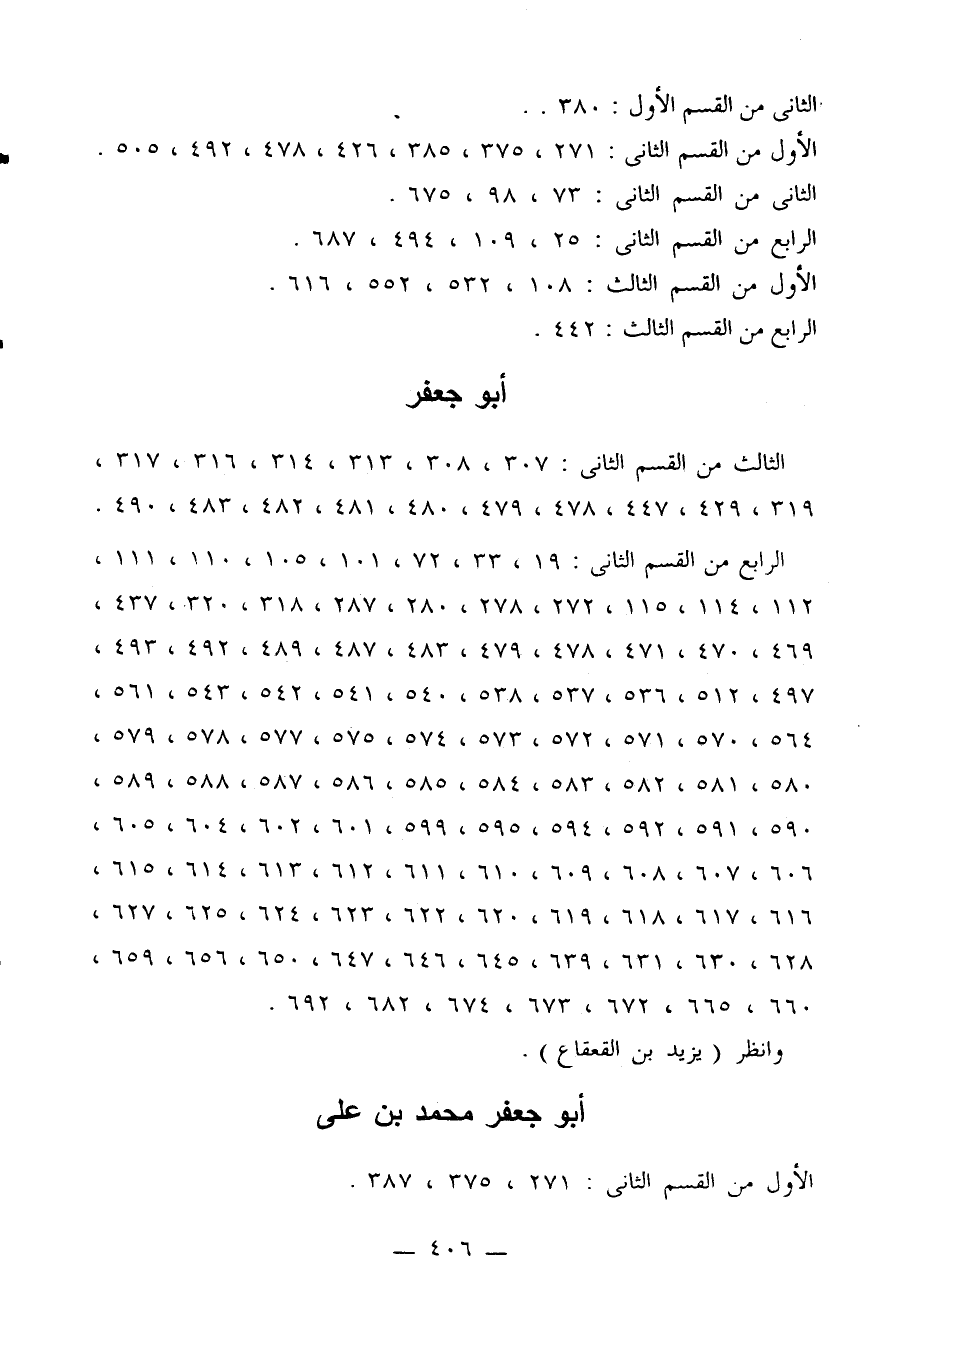 الثانى من القسم الأول : ٣٨٠ . .
الأول من القسم الثانى : ٢٧١ ، ٣٧٥ ، ٣٨٥ ، ٤٢٦ ، ٤٧٨ ، ٤٩٢ ، ٥٠٥ .
الثانى من القسم الثانى : ٧٣ ، ٩٨ ، ٦٧٥ .
الرابع من القسم الثانى : ٢٥ ، ١٠٩ ، ٤٩٤ ، ٦٨٧ .
الأول من القسم الثالث : ١٠٨ ، ٥٣٢ ، ٥٥٢ ، ٦١٦ .
الرابع من القسم الثالث : ٤٤٢ .
أبو جعفر
الثالث من القسم الثانى : ٣٠٧ ، ٣٠٨ ، ٣١٣ ، ٣١٤ ، ٣١٦ ، ٣١٧ ،
٣١٩ ، ٤٢٩ ، ٤٤٧ ، ٤٧٨ ، ٤٧٩ ، ٤٨٠ ، ٤٨١ ، ٤٨٢ ، ٤٨٣ ، ٤٩٠ .
الرابع من القسم الثانى : ١٩ ، ٣٣ ، ٧٢ ، ١٠١ ، ١٠٥ ، ١١٠ ، ١١١ ،
١١٢ ، ١١٤ ، ١١٥ ، ٢٧٢ ، ٢٧٨ ، ٢٨٠ ، ٢٨٧ ، ٣١٨ ، ٣٢٠ ، ٤٣٧ ،
٤٦٩ ، ٤٧٠ ، ٤٧١ ، ٤٧٨ ، ٤٧٩ ، ٤٨٣ ، ٤٨٧ ، ٤٨٩ ، ٤٩٢ ، ٤٩٣ ،
٤٩٧ ، ٥١٢ ، ٥٣٦ ، ٥٣٧ ، ٥٣٨ ، ٥٤٠ ، ٥٤١ ، ٥٤٢ ، ٥٤٣ ، ٥٦١ ،
٥٦٤ ، ٥٧٠ ، ٥٧١ ، ٥٧٢ ، ٥٧٣ ، ٥٧٤ ، ٥٧٥ ، ٥٧٧ ، ٥٧٨ ، ٥٧٩ ،
٥٨٠ ، ٥٨١ ، ٥٨٢ ، ٥٨٣ ، ٥٨٤ ، ٥٨٥ ، ٥٨٦ ، ٥٨٧ ، ٥٨٨ ، ٥٨٩ ،
٥٩٠ ، ٥٩١ ، ٥٩٢ ، ٥٩٤ ، ٥٩٥ ، ٥٩٩ ، ٦٠١ ، ٦٠٢ ، ٦٠٤ ، ٦٠٥ ،
٦٠٦ ، ٦٠٧ ، ٦٠٨ ، ٦٠٩ ، ٦١٠ ، ٦١١ ، ٦١٢ ، ٦١٣ ، ٦١٤ ، ٦١٥ ،
٦١٦ ، ٦١٧ ، ٦١٨ ، ٦١٩ ، ٦٢٠ ، ٦٢٢ ، ٦٢٣ ، ٦٢٤ ، ٦٢٥ ، ٦٢٧ ،
٦٢٨ ، ٦٣٠ ، ٦٣١ ، ٦٣٩ ، ٦٤٥ ، ٦٤٦ ، ٦٤٧ ، ٦٥٠ ، ٦٥٦ ، ٦٥٩ ،
٦٦٠ ، ٦٦٥ ، ٦٧٢ ، ٦٧٣ ، ٦٧٤ ، ٦٨٢ ، ٦٩٢ .
وانظر ( يزيد بن القعقاع ) .
أبو جعفر محمد بن على
الأول من القسم الثانى : ٢٧١ ، ٣٧٥ ، ٣٨٧ .
— ٤٠٦ —